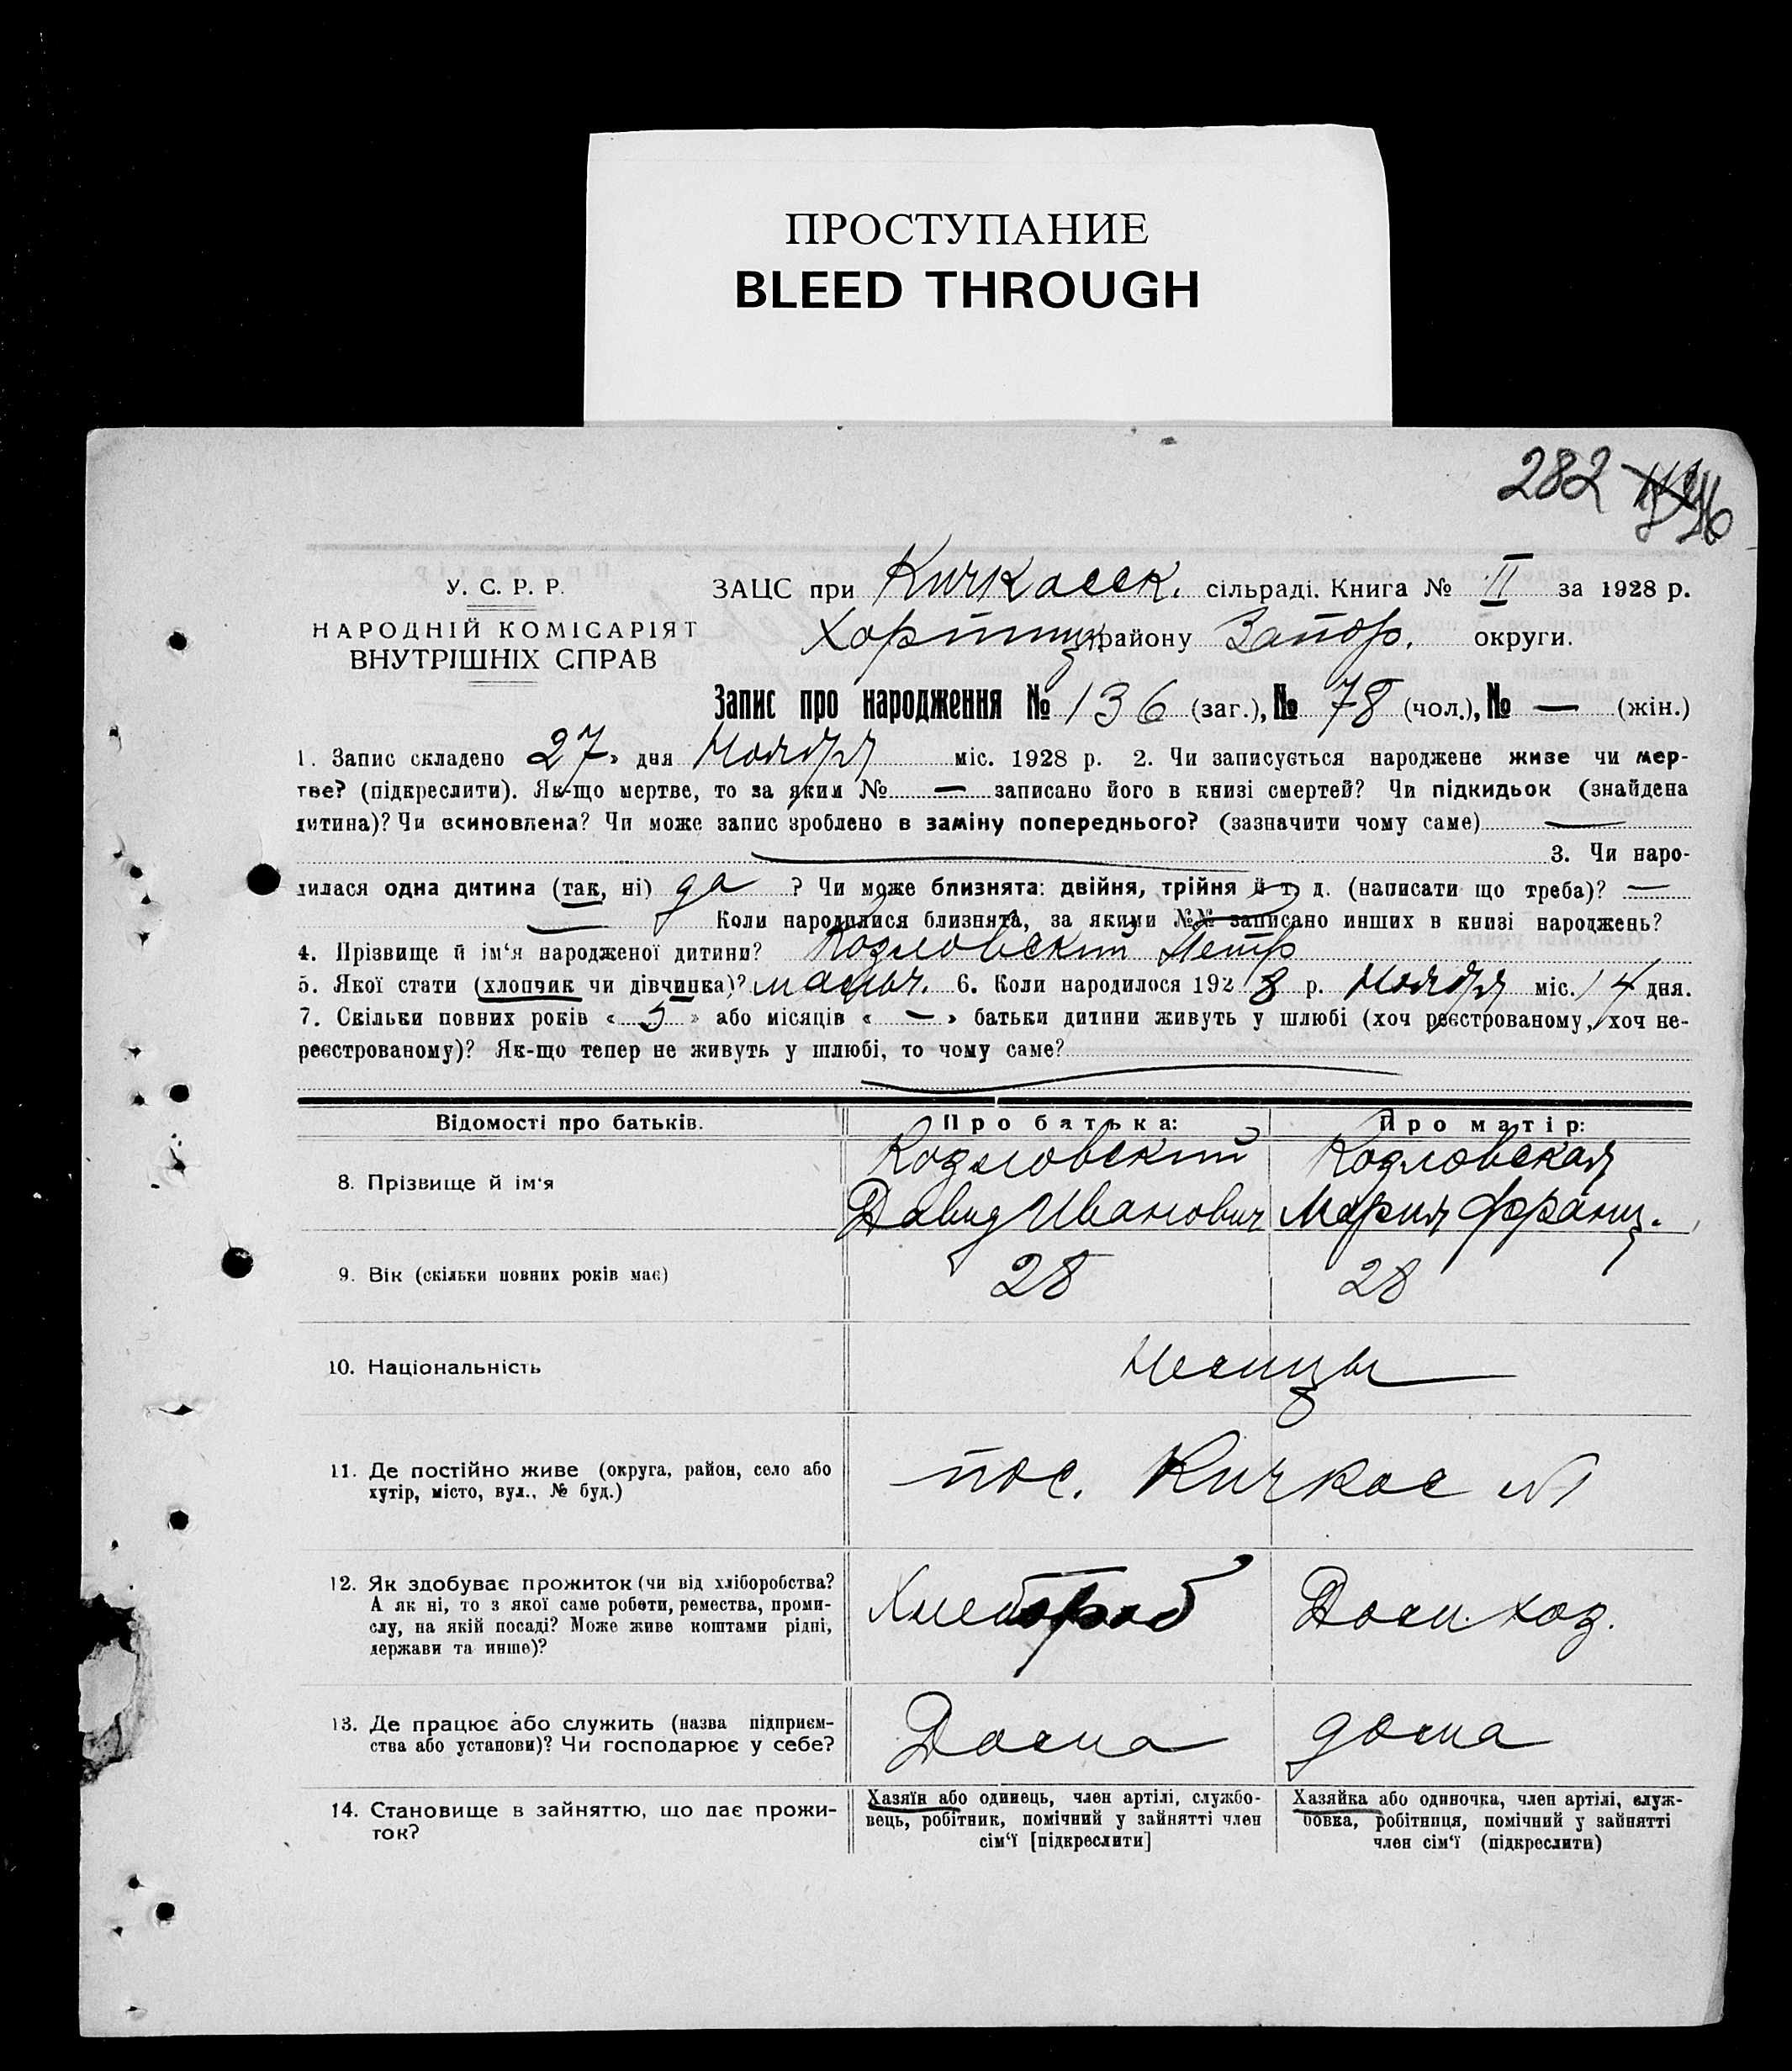 ПРОСТУПАНИЕ
BLEED THROUGH
282
У. С. Р. Р.
НАРОДНІЙ КОМІСАРІЯТ
ВНУТРІШНІХ СПРАВ
ЗАЦС при Кичкасск. сільраді. Книга № II за 1928 р.
Хортиц. району Запор. округи.
Запис про народження № 136 (заг.), № 78 (чол.), № — (жін.)
1. Запис складено 27 » дня Ноября міс. 1928 р. 2. Чи записується народжене живе чи мер-
тве? (підкреслити). Як-що мертве, то за яким № — записано його в книзі смертей? Чи підкидьок (знайдена
дитина)? Чи всиновлена? Чи може запис зроблено в заміну попереднього? (зазначити чому саме) —
3. Чи наро-
дилася одна дитина (так, ні) да ? Чи може близнята: двійня, трійня й т. д. (написати що треба)? —
— Коли народилися близнята, за якими №№ записано инших в книзі народжень?
4. Прізвище й ім‘я народженої дитини? Козловский Петр
5. Якої стати (хлопчик чи дівчинка)? мальч. 6. Коли народилося 1928 р. Ноября міс. 14 дня.
7. Скільки повних років « 5 » або місяців « — » батьки дитини живуть у шлюбі (хоч реєстрованому, хоч не-
реєстрованому)? Як-що тепер не живуть у шлюбі, то чому саме?
Відомості про батьків. Про батька: Про матір:
8. Прізвище й ім‘я Козловский Давид Иванович Козловская Мария Франц.
9. Вік (скільки повних років має) 28 28
10. Національність Немцы
11. Де постійно живе (округа, район, село або
хутір, місто, вул., № буд.) пос. Кичкас №1
12. Як здобуває прожиток (чи від хліборобства?
А як ні, то з якої саме роботи, ремества, проми-
слу, на якій посаді? Може живе коштами рідні,
держави та инше)? Хлебороб Дом. хоз.
13. Де працює або служить (назва підприєм-
ства або установи)? Чи господарює у себе? Дома дома
14. Становище в зайняттю, що дає прожи-
ток?
Хазяїн або одинець, член артілі, службо-
вець, робітник, помічний у зайнятті член
сім‘ї [підкреслити]
Хазяйка або одиночка, член артілі, служ-
бовка, робітниця, помічний у зайнятті
член сім‘ї (підкреслити)